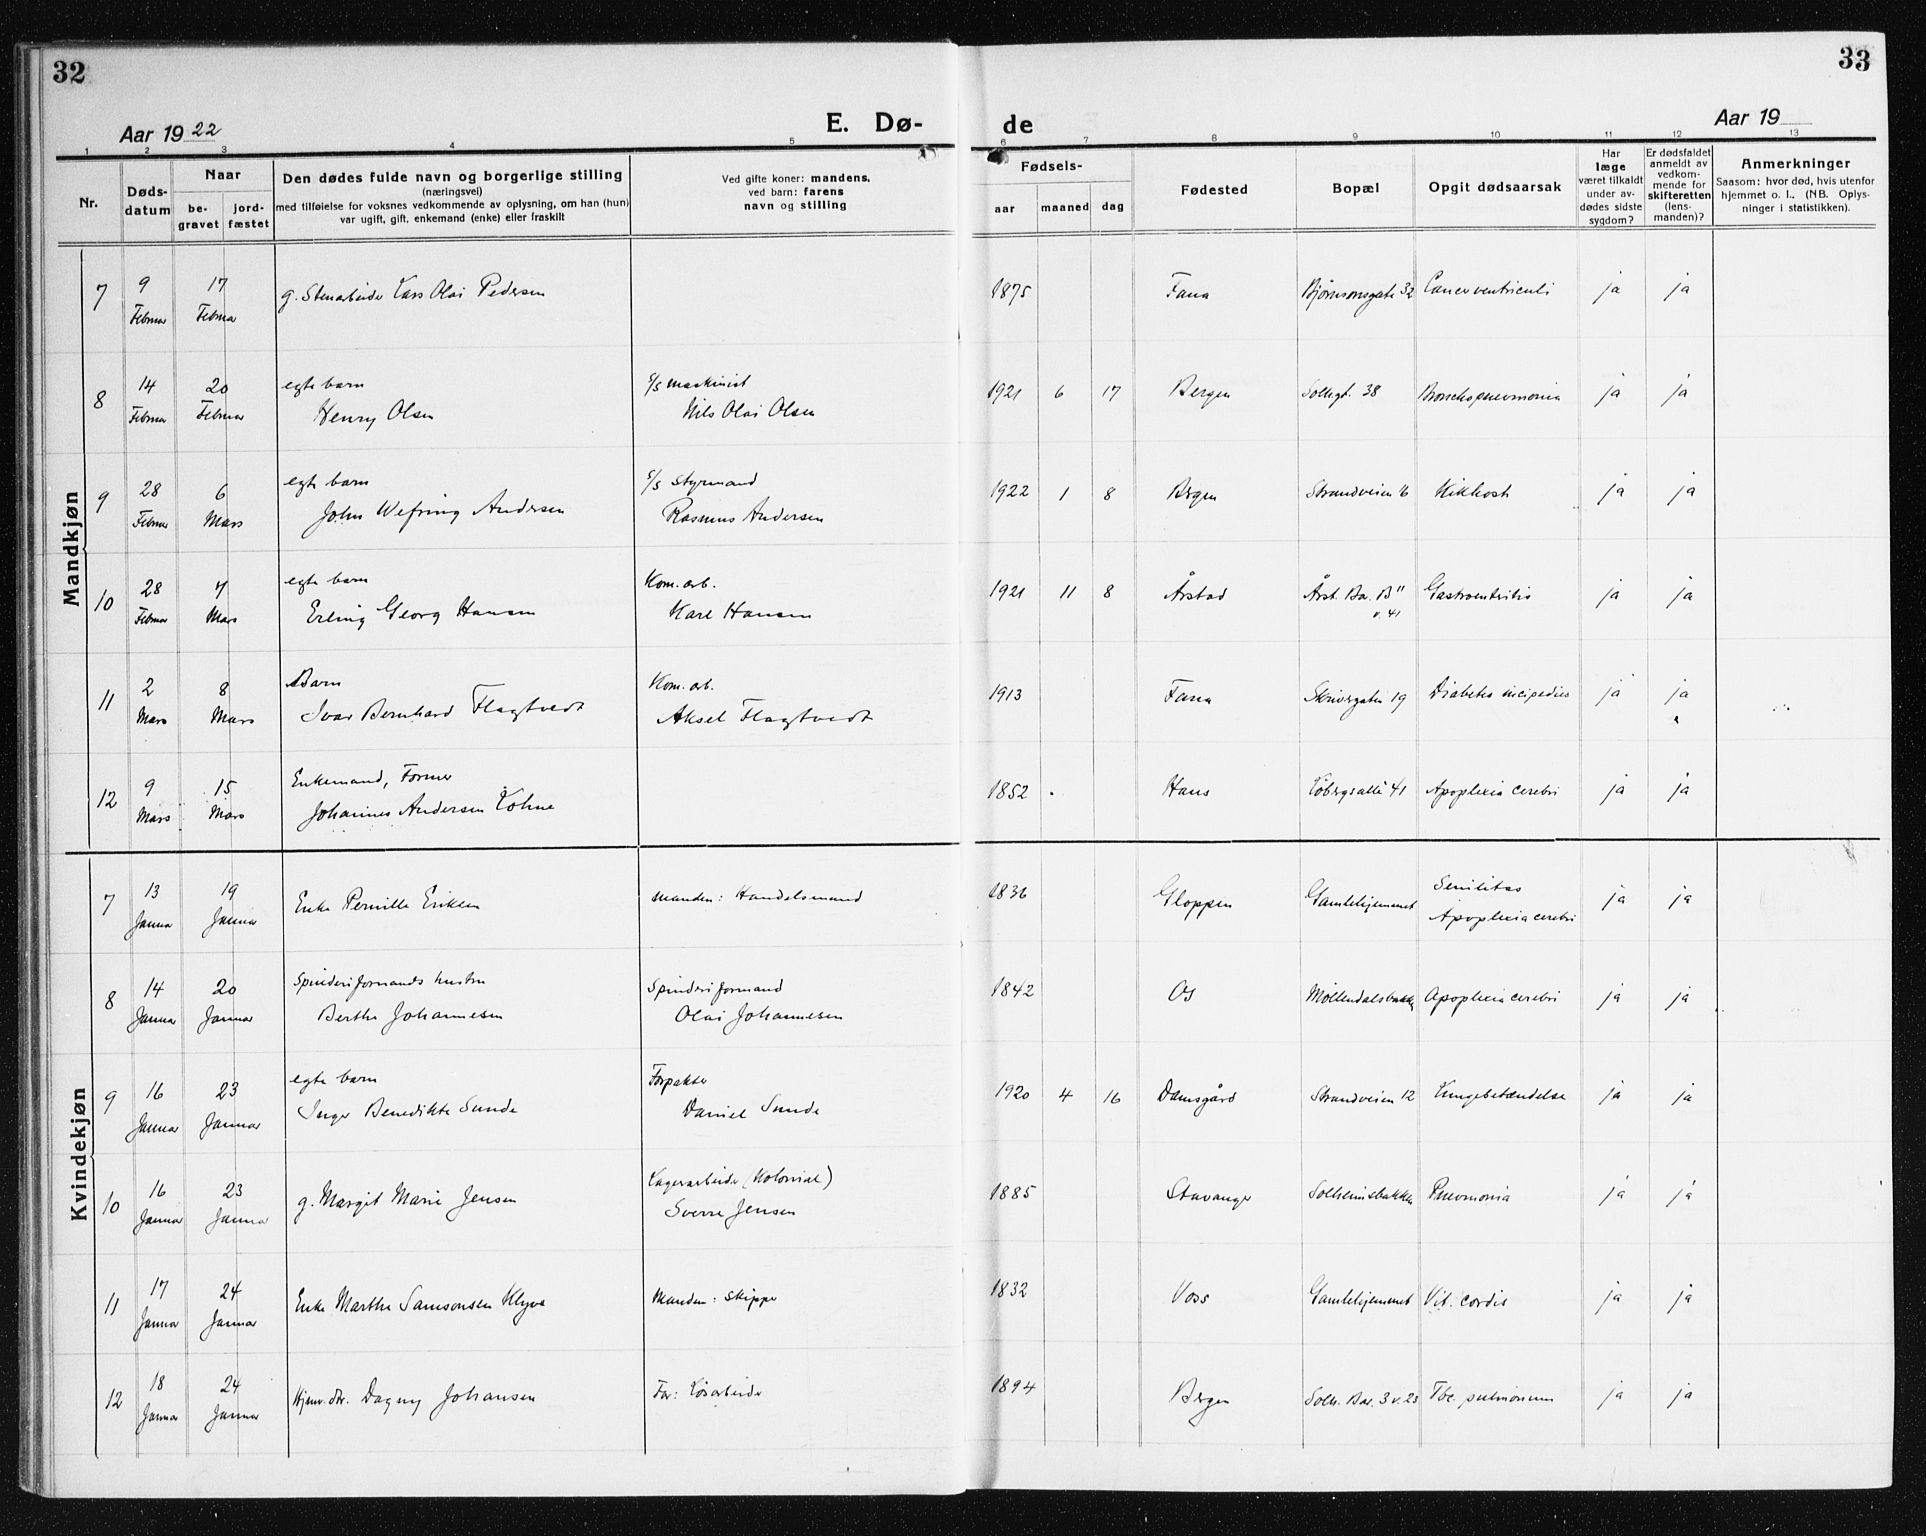 32
33
Aar 1922
E. Dø-
de
Aar 19
1 2 3 4 5 6 7 8 9 10 11 12 13
Nr.
Døds-
datum
Naar
be-
gravet
jord-
fæstet
Den dødes fulde navn og borgerlige stilling
(næringsvei)
med tilføielse for voksnes vedkommende av oplysning, om han (hun)
var ugift, gift, enkemand (enke) eller fraskilt
Ved gifte koner: mandens,
ved barn: farens
navn og stilling
Fødsels-
aar maaned dag
Fødested
Bopæl
Opgit dødsaarsak
Har
læge
været tilkaldt
under av-
dødes sidste
sygdom?
Er dødsfaldet
anmeldt av
vedkom-
mende for
skifteretten
(lens-
manden)?
Anmerkninger
Saasom: hvor død, hvis utenfor
hjemmet o. l., (NB. Oplys-
ninger i statistikken).
Mandkjøn
7 9 Februar 17 Februar g. Stenarbeider Lars Olai Pedersen 1875 Fana Bjørnsonsgate 32 Cancer ventriculi ja ja
8 14 Februar 20 Februar egte barn
Henry Olsen
s/s maskinist
Nils Olai Olsen
1921 6 17 Bergen Solhgt. 38 Bronchopneumonia ja ja
9 28 Februar 6 Mars egte barn
John Wefring Andersen
s/s Styrmand
Rasmus Andersen
1922 1 8 Bergen Strandveien 16 Kikhoste ja ja
10 28 Februar 7 Mars egte barn
Erling Georg Hansen
Kom. arb.
Karl Hansen
1921 11 8 Årstad Årst. Bar. B"
v. 41
Gastroenteritis ja ja
11 2 Mars 8 Mars Barn
Ivar Bernhard Flagtvedt
Kom. arb.
Aksel Flagtvedt
1913 Fana Skrivergaten 19 Diabetes incipedies ja ja
12 9 Mars 15 Mars Enkemand, Former
Johannes Andersen Løhne
1852 Haus Løbergsallé 41 Apoplexia cerebri ja ja
Kvindekjøn
7 13 Januar 19 Januar Enke Pernille Eriksen manden: Handelsmand 1836 Gloppen Gamlehjemmet Senilitas
Apoplexia cerebri ja ja
8 14 Januar 20 Januar Spinderiformands hustru
Berthe Johannesen
Spinderiformand
Olai Johannesen
1842 Os Møllendalsbakken Apoplexia cerebri ja ja
9 16 Januar 23 Januar egte barn
Inger Benedikte Sunde
Forpakter
Daniel Sunde
1920 4 16 Damsgård Strandveien 12 Lungebetændelse ja ja
10 16 Januar 23 Januar g. Margit Marie Jensen
Lagerarbeider (Kolonial)
Sverre Jensen
1885 Stavanger Solheimsbakken Pneumonia ja ja
11 17 Januar 24 Januar Enke Marthe Samsonsen Klyve Manden: Skipper 1832 Voss Gamlehjemmet Vit. cordis ja ja
12 18 Januar 24 Januar Hjemv. dtr. Dagny Johansen Far: Løsarbeider 1894 Bergen Solh. Bar. 3 v. 23 Tbc. pulmonum ja ja